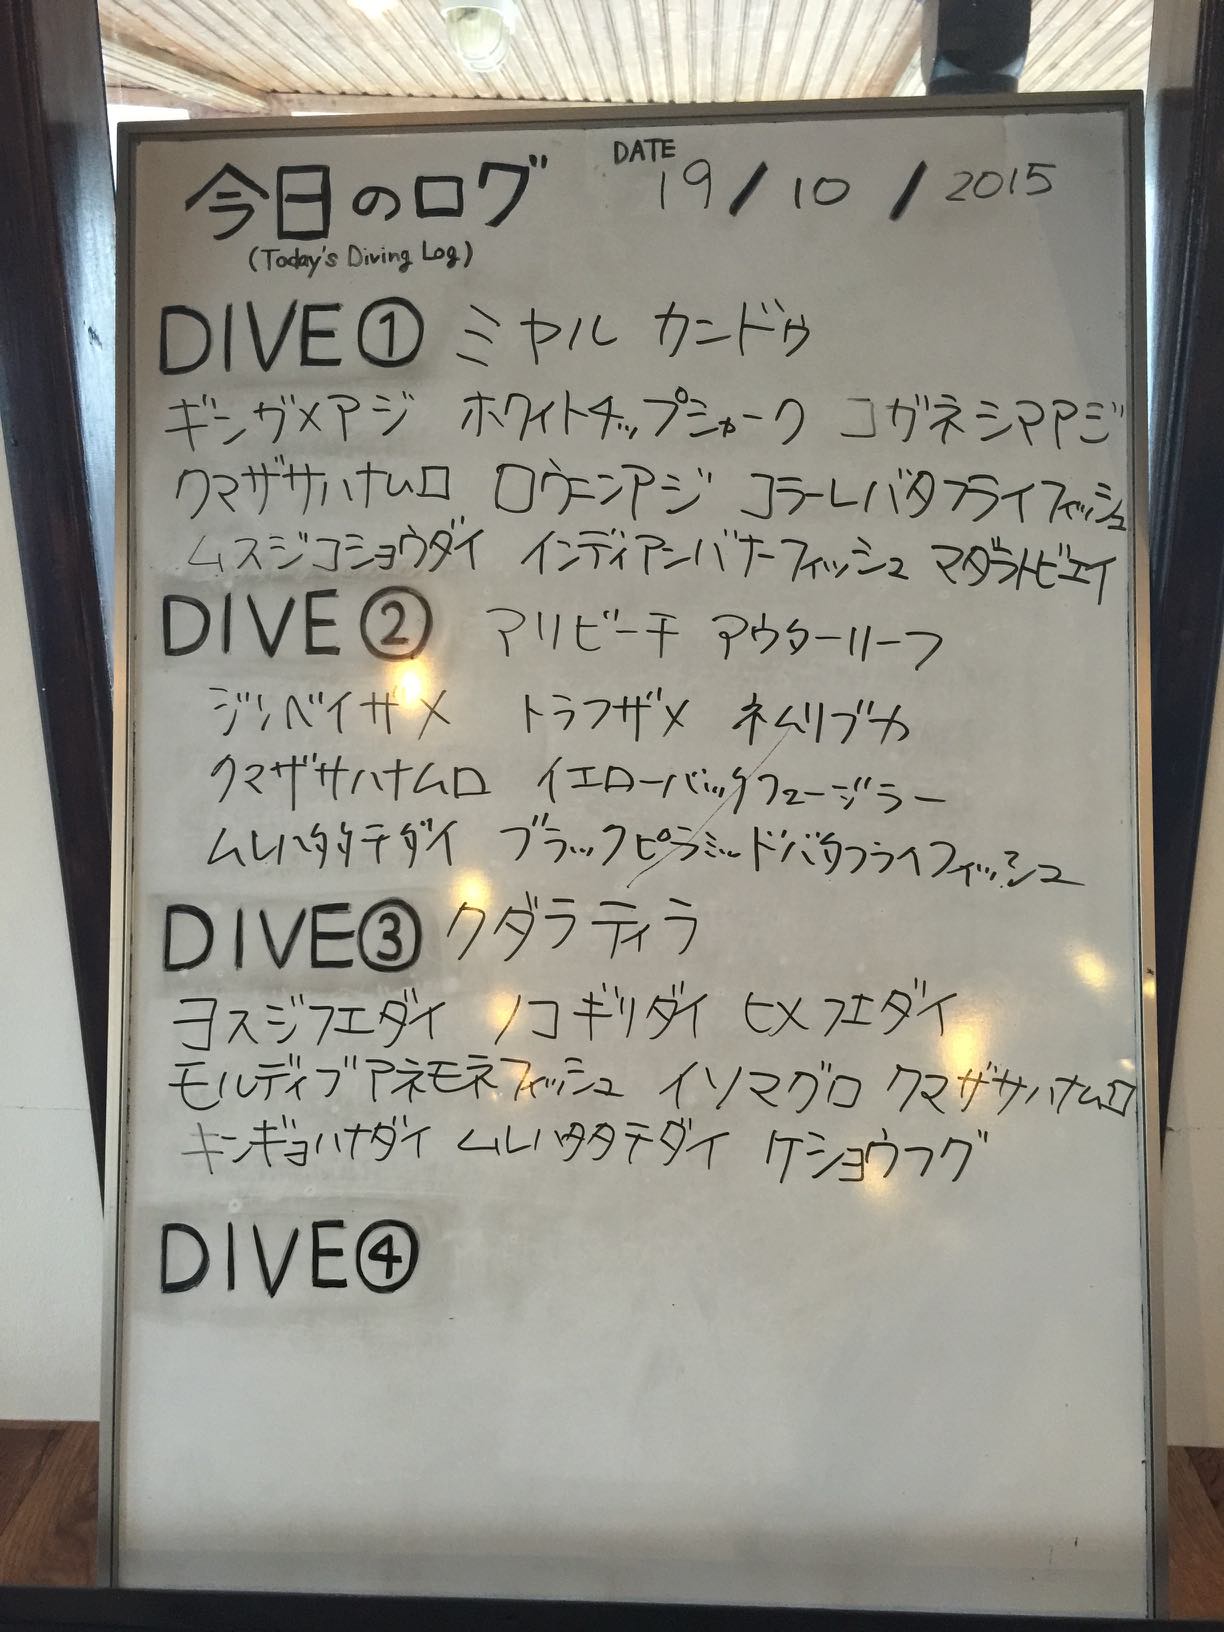 今日のログ DATE 19/10/2015
(Today's Diving Log)
DIVE① ミヤル カンドゥ
ギンガメアジ ホワイトチップシャーク コガネシマアジ
クマザサハナムロ ロウニンアジ コラーレバタフライフィッシュ
ムスジコショウダイ インディアンバナーフィッシュ マダラトビエイ
DIVE② アリビーチ アウターリーフ
ジンベイザメ トラフザメ ネムリブカ
クマザサハナムロ イエローバックフュージラー
ムレハタタテダイ ブラックピラミッドバタフライフィッシュ
DIVE③ クダラティラ
ヨスジフエダイ ノコギリダイ ヒメフエダイ
モルディブアネモネフィッシュ イソマグロ クマザサハナムロ
キンギョハナダイ ムレハタタテダイ ケショウフグ
DIVE④